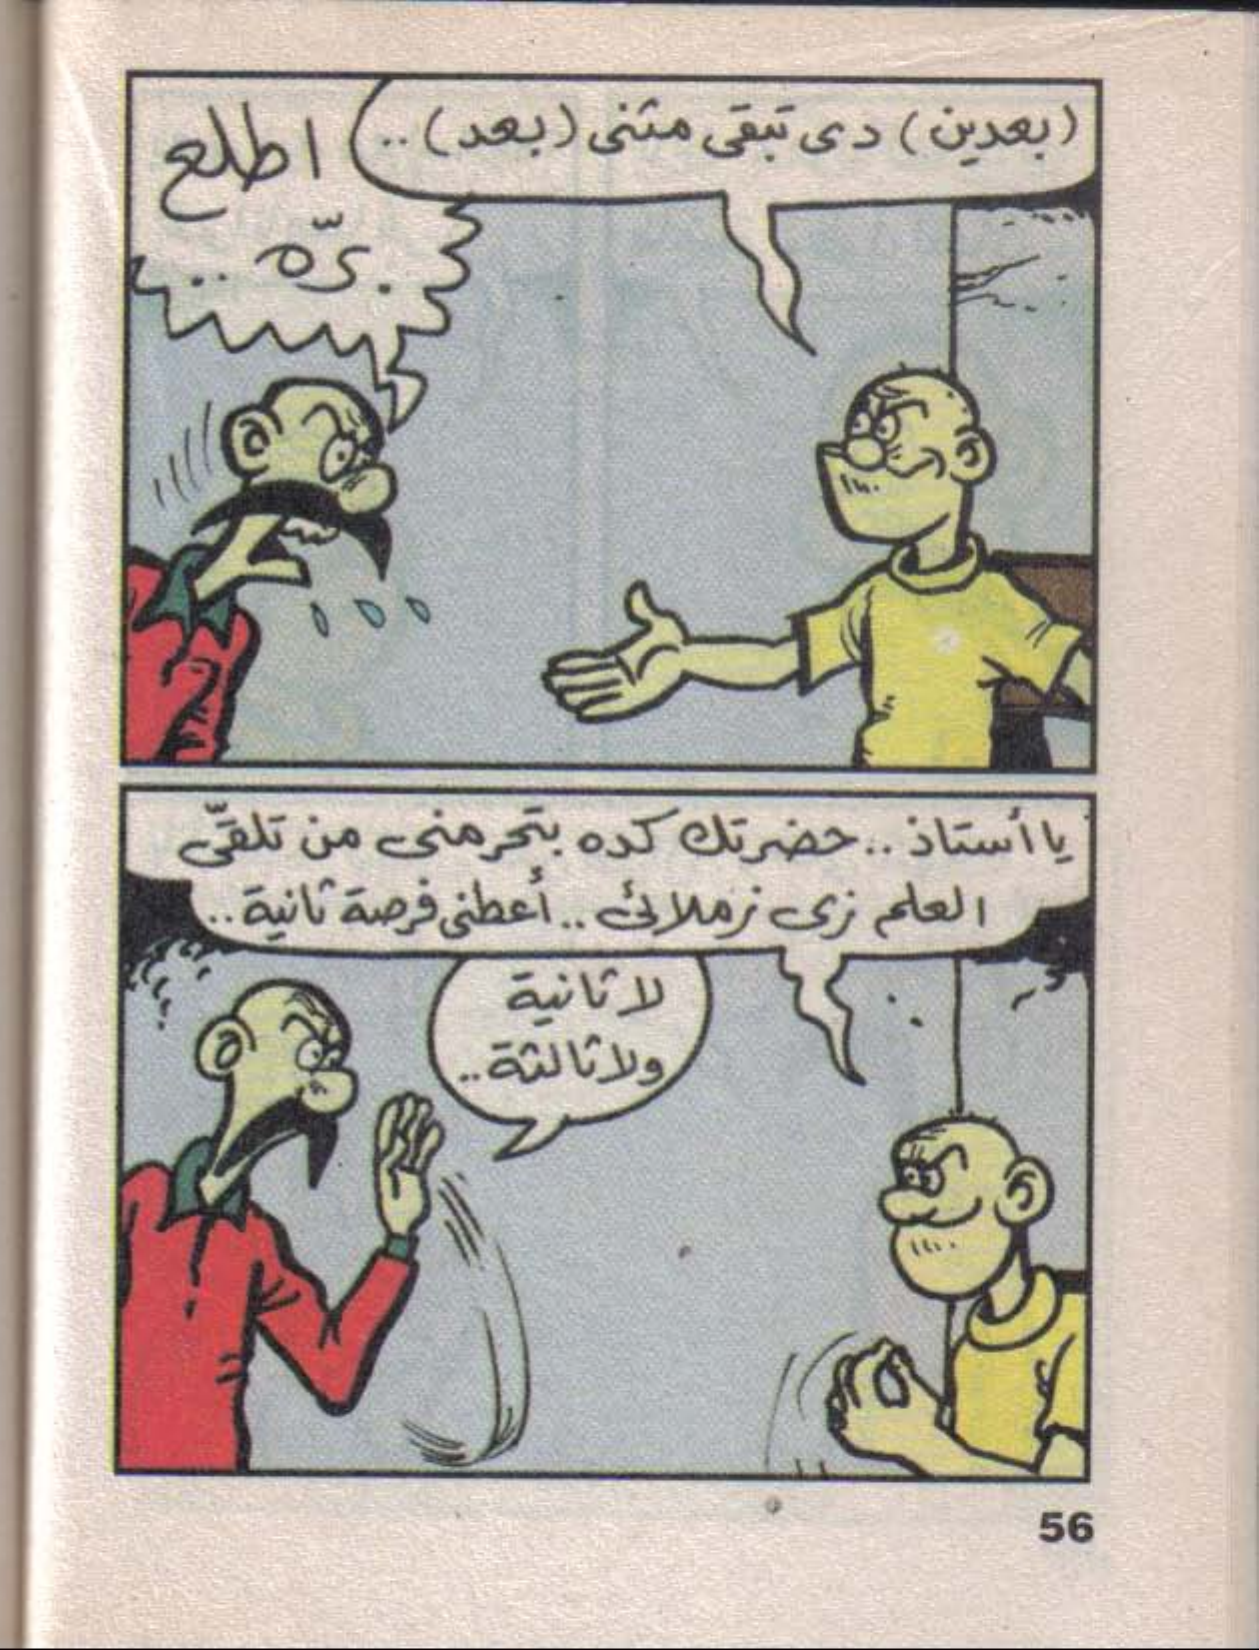 (بعدين) دى تبقى مثنى (بعد)..
اطلع
برّه ..
يا أستاذ .. حضرتك كده بتحرمنى من تلقّى
العلم زى زملائى .. أعطنى فرصة ثانية ..
لا ثانية
ولا ثالثة ..
56